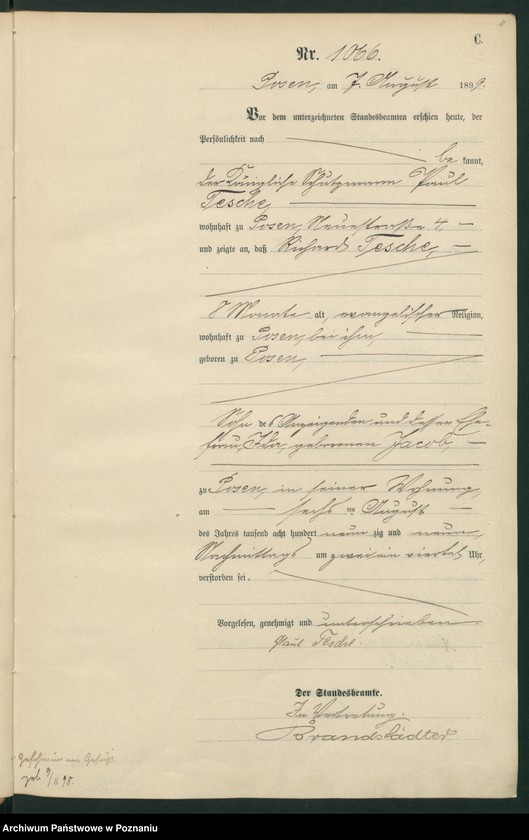 C.
Nr. 1066.
Posen, am 7. August 1899.
Vor dem unterzeichneten Standesbeamten erschien heute, der
Persönlichkeit nach
bekannt,
der Königliche Schutzmann Paul
Tesche,
wohnhaft zu Posen, Neuestraße 4,
und zeigte an, daß Richard Tesche,
8 Monate alt, evangelischer Religion,
wohnhaft zu Posen, bei ihm,
geboren zu Posen,
Sohn des Anzeigenden und dessen Ehe-
frau, Ida, geborenen Jacob,
zu Posen, in seiner Wohnung,
am sechs ten August
des Jahres tausend acht hundert neun zig und neun,
Nachmittags um zwei ein viertel Uhr,
verstorben sei.
Vorgelesen, genehmigt und unterschrieben
Paul Tesche.
Der Standesbeamte.
In Vertretung.
Brandstädter
geb 9/11 98.
Archiwum Państwowe w Poznaniu